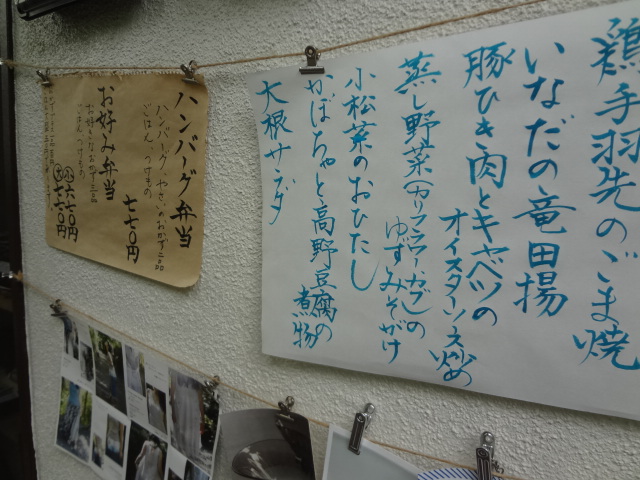 鶏手羽先のごま焼
いなだの竜田揚
豚ひき肉とキャベツの
オイスターソース炒め
蒸し野菜(カリフラワー、カブ)の
ゆずみそがけ
小松菜のおひたし
かぼちゃと高野豆腐の
煮物
大根サラダ
ハンバーグ弁当
ハンバーグ、やさいのおかず二品
ごはん、つけもの
七七〇円
お好み弁当
お好きなおかず三品
ごはん、つけもの